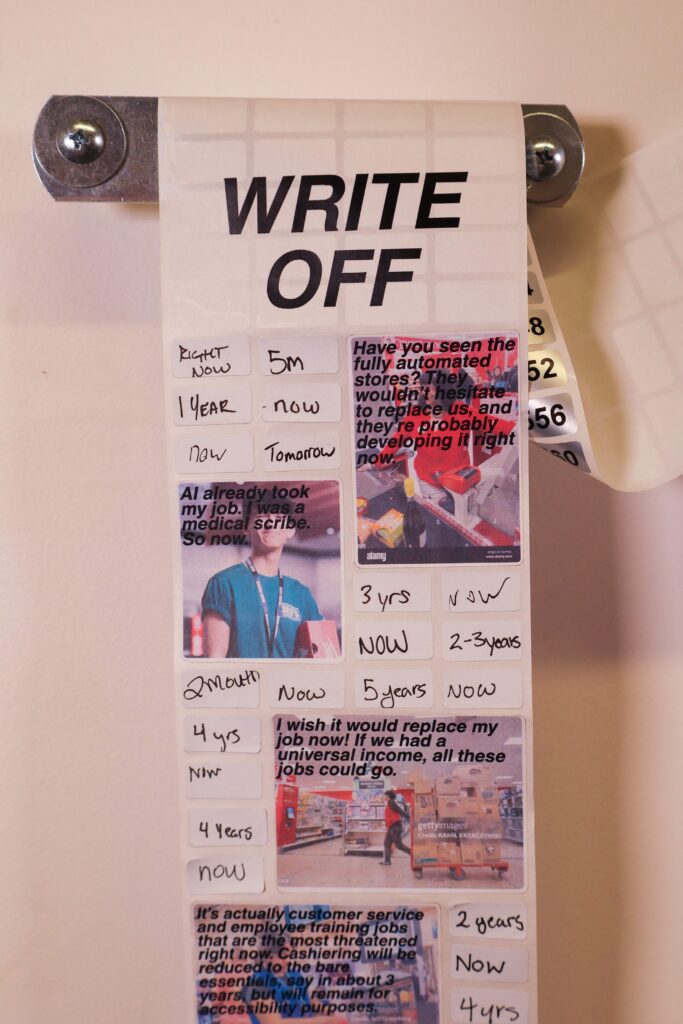 WRITE
OFF
RIGHT
NOW
5m
1 YEAR
now
now
Tomorrow
Have you seen the
fully automated
stores? They
wouldn't hesitate
to replace us, and
they're probably
developing it right
now.
alamy
8
52
56
60
AI already took
my job. I was a
medical scribe.
So now.
3 yrs
NOW
NOW
2-3 years
2 mouth
Now
5 years
NOW
4 yrs
NOW
4 Years
NOW
I wish it would replace my
job now! If we had a
universal income, all these
jobs could go.
gettyimages
Credit: KAMIL KRZACZYNSKI
It's actually customer service
and employee training jobs
that are the most threatened
right now. Cashiering will be
reduced to the bare
essentials, say in about 3
years, but will remain for
accessibility purposes.
2 years
Now
4 yrs